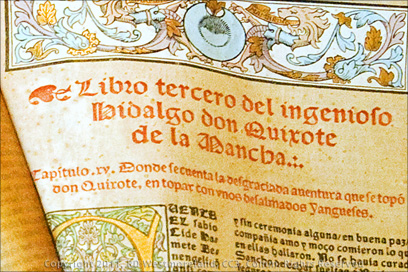 Libro tercero del ingenioso
hidalgo don Quixote
de la Mancha.:.
Capítulo. xv. Donde se cuenta la desgraciada aventura que se topó
don Quixote, en topar con vnos desalmados yangueses.
VENTA
EL sabio
Cide Ha
mete Be
nengeli
y sin ceremonia alguna, en buena paz
compañia amo y moço comieron lo
en ellas hallaron. No se hauia curado
Sancho
Copyright